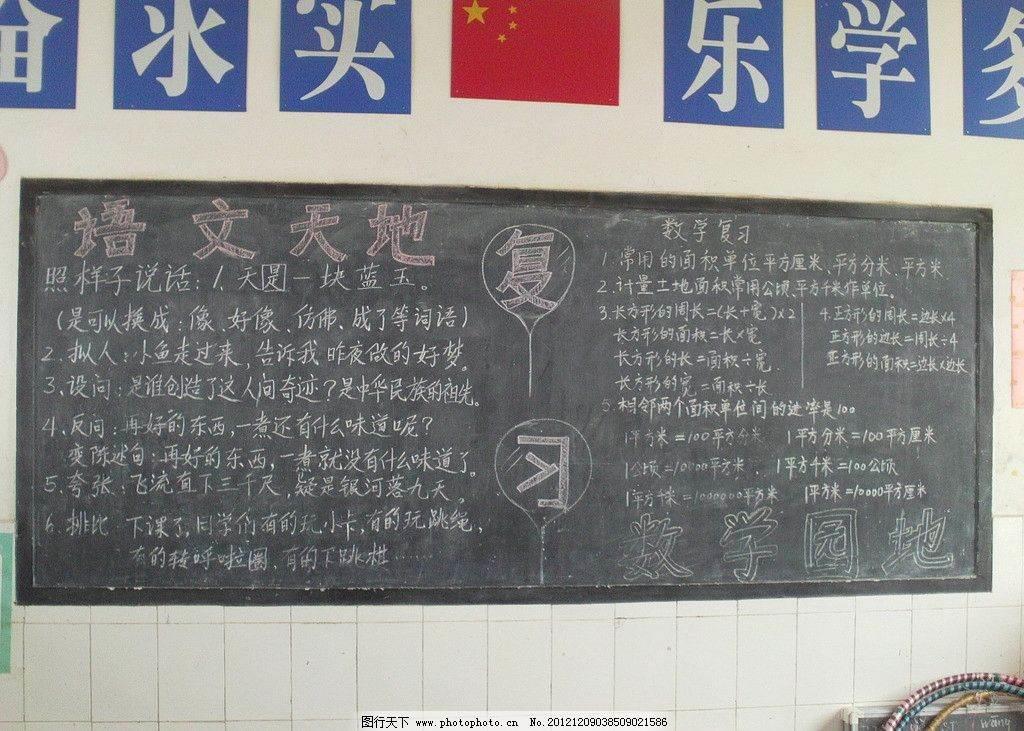 求 实 乐 学
语文天地
照样子说话：1、天是一块蓝玉。
(是可以换成：像、好像、仿佛、成了等词语)
2、拟人：小鱼走过来，告诉我昨夜做的好梦。
3、设问：是谁创造了这人间奇迹？是中华民族的祖先。
4、反问：再好的东西，一煮还有什么味道呢？
变陈述句：再好的东西，一煮就没有什么味道了。
5、夸张：飞流直下三千尺，疑是银河落九天。
6、排比 下课了，同学们有的玩小卡，有的玩跳绳，
有的转呼啦圈，有的下跳棋……
复
习
数学复习
1.常用的面积单位平方厘米、平方分米、平方米
2.计量土地面积常用公顷、平方千米作单位。
3.长方形的周长=(长+宽)×2
长方形的面积=长×宽
长方形的长=面积÷宽
长方形的宽=面积÷长
4.正方形的周长=边长×4
正方形的边长=周长÷4
正方形的面积=边长×边长
5.相邻两个面积单位间的进率是100
1平方米=100平方分米 1平方分米=100平方厘米
1公顷=10000平方米 1平方千米=100公顷
1平方千米=1000000平方米 1平方米=10000平方厘米
数学园地
图行天下 www.photophoto.cn No.20121209038509021586